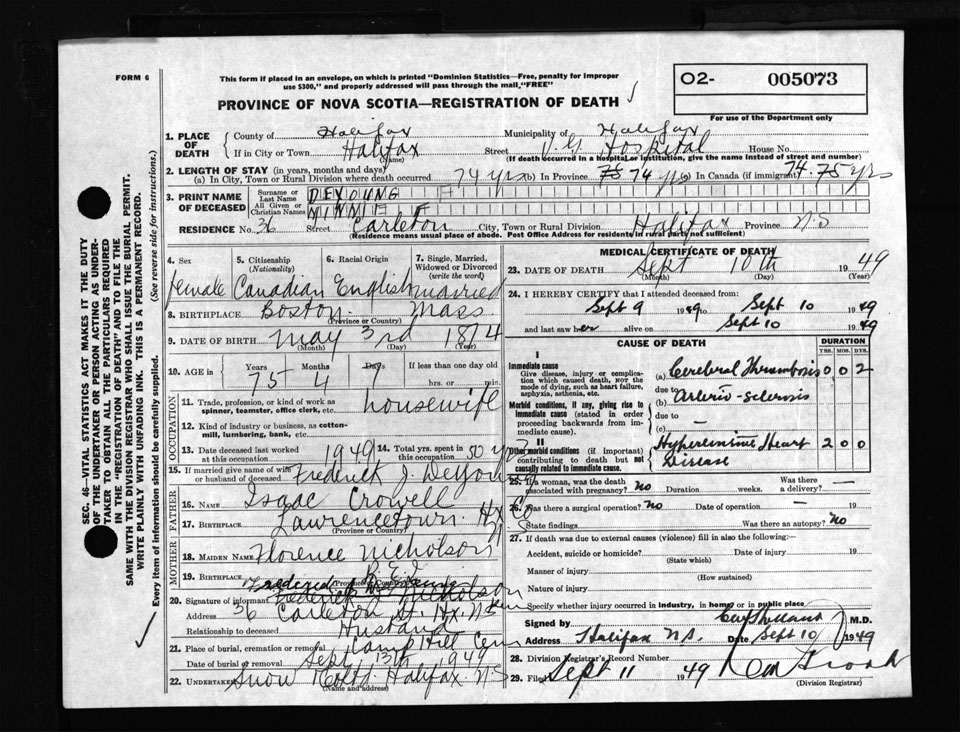 FORM 6
This form if placed in an envelope, on which is printed "Dominion Statistics—Free, penalty for improper
use $300," and properly addressed will pass through the mail "FREE"
O2- 005073
For use of the Department only
PROVINCE OF NOVA SCOTIA—REGISTRATION OF DEATH
1. PLACE OF DEATH { County of Halifax Municipality of Halifax
If in City or Town Halifax (Name) Street V. G. Hospital House No.
(If death occurred in a hospital or institution, give the name instead of street and number)
2. LENGTH OF STAY (in years, months and days)
(a) In City, Town or Rural Division where death occurred 74 yrs (b) In Province 75 74 yrs (c) In Canada (if immigrant) 74 75 yrs
3. PRINT NAME OF DECEASED { Surname or Last Name DEYOUNG
All Given or Christian Names MINNIE F
RESIDENCE No. 36 Street Carleton City, Town or Rural Division Halifax Province N.S
(Residence means usual place of abode. Post Office Address for residents in rural parts not sufficient)
4. Sex Female
5. Citizenship (Nationality) Canadian
6. Racial Origin English
7. Single, Married, Widowed or Divorced (write the word) married
8. BIRTHPLACE Boston Mass
(Province or Country)
9. DATE OF BIRTH May 3rd 1874
(Month) (Day) (Year)
10. AGE in Years 75 Months 4 Days 7 If less than one day
hrs. or min.
OCCUPATION
11. Trade, profession, or kind of work as spinner, teamster, office clerk, etc. housewife
12. Kind of industry or business, as cotton-mill, lumbering, bank, etc.
13. Date deceased last worked at this occupation 1949 14. Total yrs. spent in this occupation 50 yrs
15. If married give name of wife or husband of deceased Frederick J. DeYoung
FATHER
16. Name Isaac Crowell
17. Birthplace Lawrencetown Hx Co
(Province or Country)
MOTHER
18. MAIDEN NAME Florence Nicholson
19. Birthplace P.E.I
(Province or Country)
20. Signature of informant
Address 36 Carleton St. Hx. N.S
Relationship to deceased Husband
21. Place of burial, cremation or removal Camp Hill Cem
Date of burial or removal Sept 13th 1949
22. Undertaker Snow & Co Ltd. Halifax N.S
(Name and address)
MEDICAL CERTIFICATE OF DEATH
23. DATE OF DEATH Sept 10th 1949
(Month) (Day) (Year)
24. I HEREBY CERTIFY that I attended deceased from:
Sept 9 1949 to Sept 10 1949
and last saw her alive on Sept 10 1949
CAUSE OF DEATH DURATION
YRS. MOS. DYS.
I
Immediate cause
Give disease, injury or complication which caused death, NOT the mode of dying, such as heart failure, asphyxia, asthenia, etc.
(a) Cerebral Thrombosis 0 0 2
due to
Morbid conditions, if any, giving rise to immediate cause (stated in order proceeding backwards from immediate cause).
(b) arterio-sclerosis
due to
(c)
II
Other morbid conditions (if important) contributing to death but not causally related to immediate cause.
Hypertensive Heart Disease 2 0 0
25. If a woman, was the death associated with pregnancy? no Duration weeks. Was there a delivery? —
26. Was there a surgical operation? no Date of operation — 19
State findings Was there an autopsy? no
27. If death was due to external causes (violence) fill in also the following:—
Accident, suicide or homicide? Date of injury 19
(State which)
Manner of injury
(How sustained)
Nature of injury
Specify whether injury occurred in industry, in home, or in public place
Signed by M.D.
Address Halifax N.S. Date Sept 10 1949
28. Division Registrar's Record Number
29. Filed Sept 11 1949
(Division Registrar)
SEC. 46—VITAL STATISTICS ACT MAKES IT THE DUTY
OF THE UNDERTAKER OR PERSON ACTING AS UNDER-
TAKER TO OBTAIN ALL THE PARTICULARS REQUIRED
IN THE "REGISTRATION OF DEATH" AND TO FILE THE
SAME WITH THE DIVISION REGISTRAR WHO SHALL ISSUE THE BURIAL PERMIT.
WRITE PLAINLY WITH UNFADING INK. THIS IS A PERMANENT RECORD.
Every item of information should be carefully supplied. (See reverse side for instructions.)